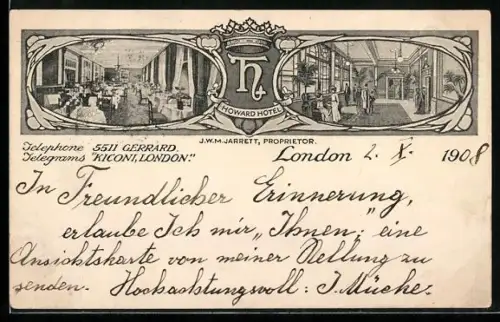 H
HOWARD HOTEL
J.W.M. JARRETT, PROPRIETOR.
Telephone 5511 GERRARD.
Telegrams "RICONI, LONDON."
London 2. X. 1908
In Freundlicher Erinnerung,
erlaube Ich mir „Ihnen„ eine
Ansichtskarte von meiner Stellung zu
senden. Hochachtungsvoll: J. Müche.